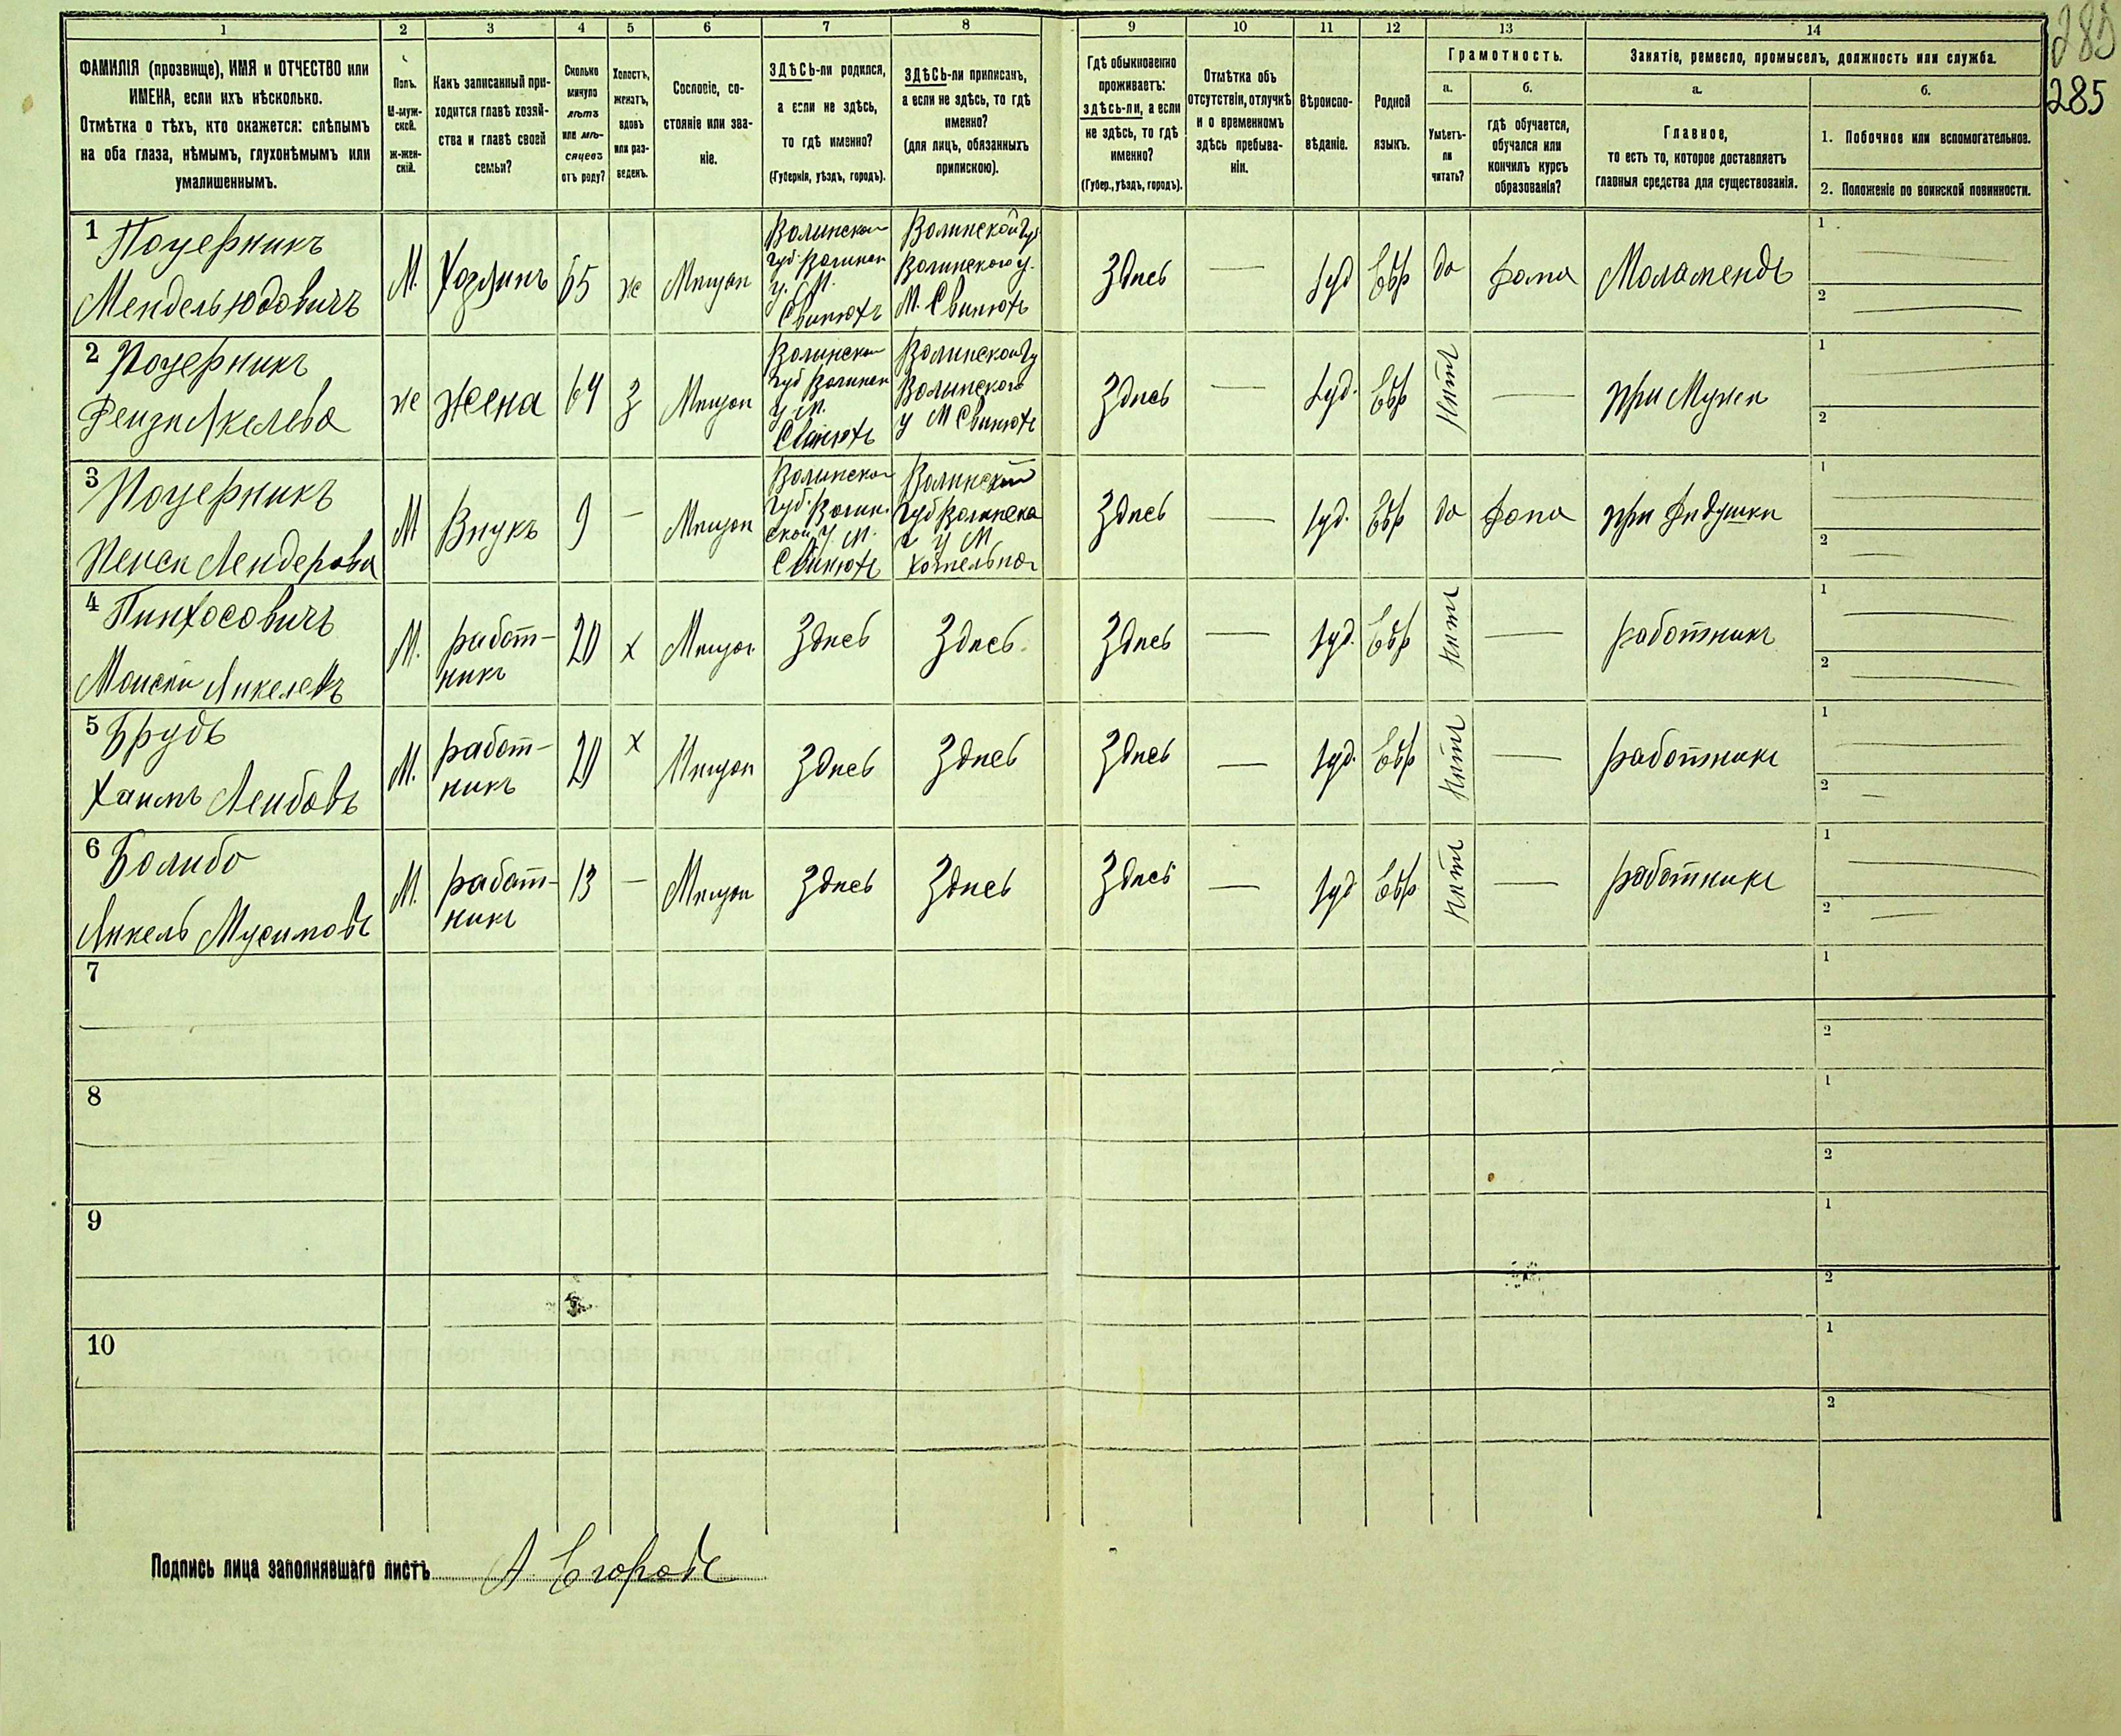 1 2 3 4 5 6 7 8 9 10 11 12 13 14
285
285
ФАМИЛІЯ (прозвище), ИМЯ и ОТЧЕСТВО или
ИМЕНА, если ихъ нѣсколько.
Отмѣтка о тѣхъ, кто окажется: слѣпымъ
на оба глаза, нѣмымъ, глухонѣмымъ или
умалишеннымъ.
Полъ.
М-муж-
ской.
Ж-жен-
скій.
Какъ записанный при-
ходится главѣ хозяй-
ства и главѣ своей
семьи?
Сколько
минуло
лѣтъ
или мѣ-
сяцевъ
отъ роду?
Холостъ,
женатъ,
вдовъ
или раз-
веденъ.
Сословіе, со-
стояніе или зва-
ніе.
ЗДѢСЬ-ли родился,
а если не здѣсь,
то гдѣ именно?
(Губернія, уѣздъ, городъ).
ЗДѢСЬ-ли приписанъ,
а если не здѣсь, то гдѣ
именно?
(для лицъ, обязанныхъ
припискою).
Гдѣ обыкновенно
проживаетъ:
здѣсь-ли, а если
не здѣсь, то гдѣ
именно?
(Губер., уѣздъ, городъ).
Отмѣтка объ
отсутствіи, отлучкѣ
и о временномъ
здѣсь пребыва-
ніи.
Вѣроиспо-
вѣданіе.
Родной
языкъ.
Грамотность.
а.
Умѣетъ-
ли
читать?
б.
гдѣ обучается,
обучался или
кончилъ курсъ
образованія?
Занятіе, ремесло, промыселъ, должность или служба.
а.
Главное,
то есть то, которое доставляетъ
главныя средства для существованія.
б.
1. Побочное или вспомогательное.
2. Положеніе по воинской повинности.
1 Поцерникъ
Мендель Юдовичъ
М.
Хозяинъ
65
ж
Мещан
Волинской
губ. Волинск
у. М.
Свинюхъ
Волинской гу
Волинского у.
М. Свинюхъ
Здесь
—
Іуд
Евр
да
дома
Меламендъ
1
2
2 Поцерникъ
же
жена
64
З
Мещан
Волинской
губ Волинск
у М.
Свинюхъ
Волинской гу
Волинского
у М Свинюхъ
Здесь
—
Іуд.
Евр
Нетъ
—
при Муже
1
2
3 Поцерникъ
М
Внукъ
9
—
Мещан
Волинской
губ. Волин.
ской у М.
Свинюхъ
Волинской
губ Волинска
у М
Здесь
—
Іуд.
Евр
да
дома
при Дедушки
1
2
4 Пинхосовичъ
М.
работ-
никъ
20
х
Мещан
Здесь
Здесь
Здесь
—
Іуд.
Евр
Нетъ
—
работникъ
1
2
5 Брудъ
Хаимъ Лейбовъ
М.
работ-
никъ
20
х
Мещан
Здесь
Здесь
Здесь
—
Іуд.
Евр
Нетъ
—
работникъ
1
2
6 Болибо
Янкель Мусимовъ
М.
работ-
никъ
13
—
Мещан
Здесь
Здесь
Здесь
—
Іуд
Евр
Нетъ
—
работникъ
1
2
7
1
2
8
1
2
9
1
2
10
1
2
Подпись лица заполнявшаго листъ А Егоровъ